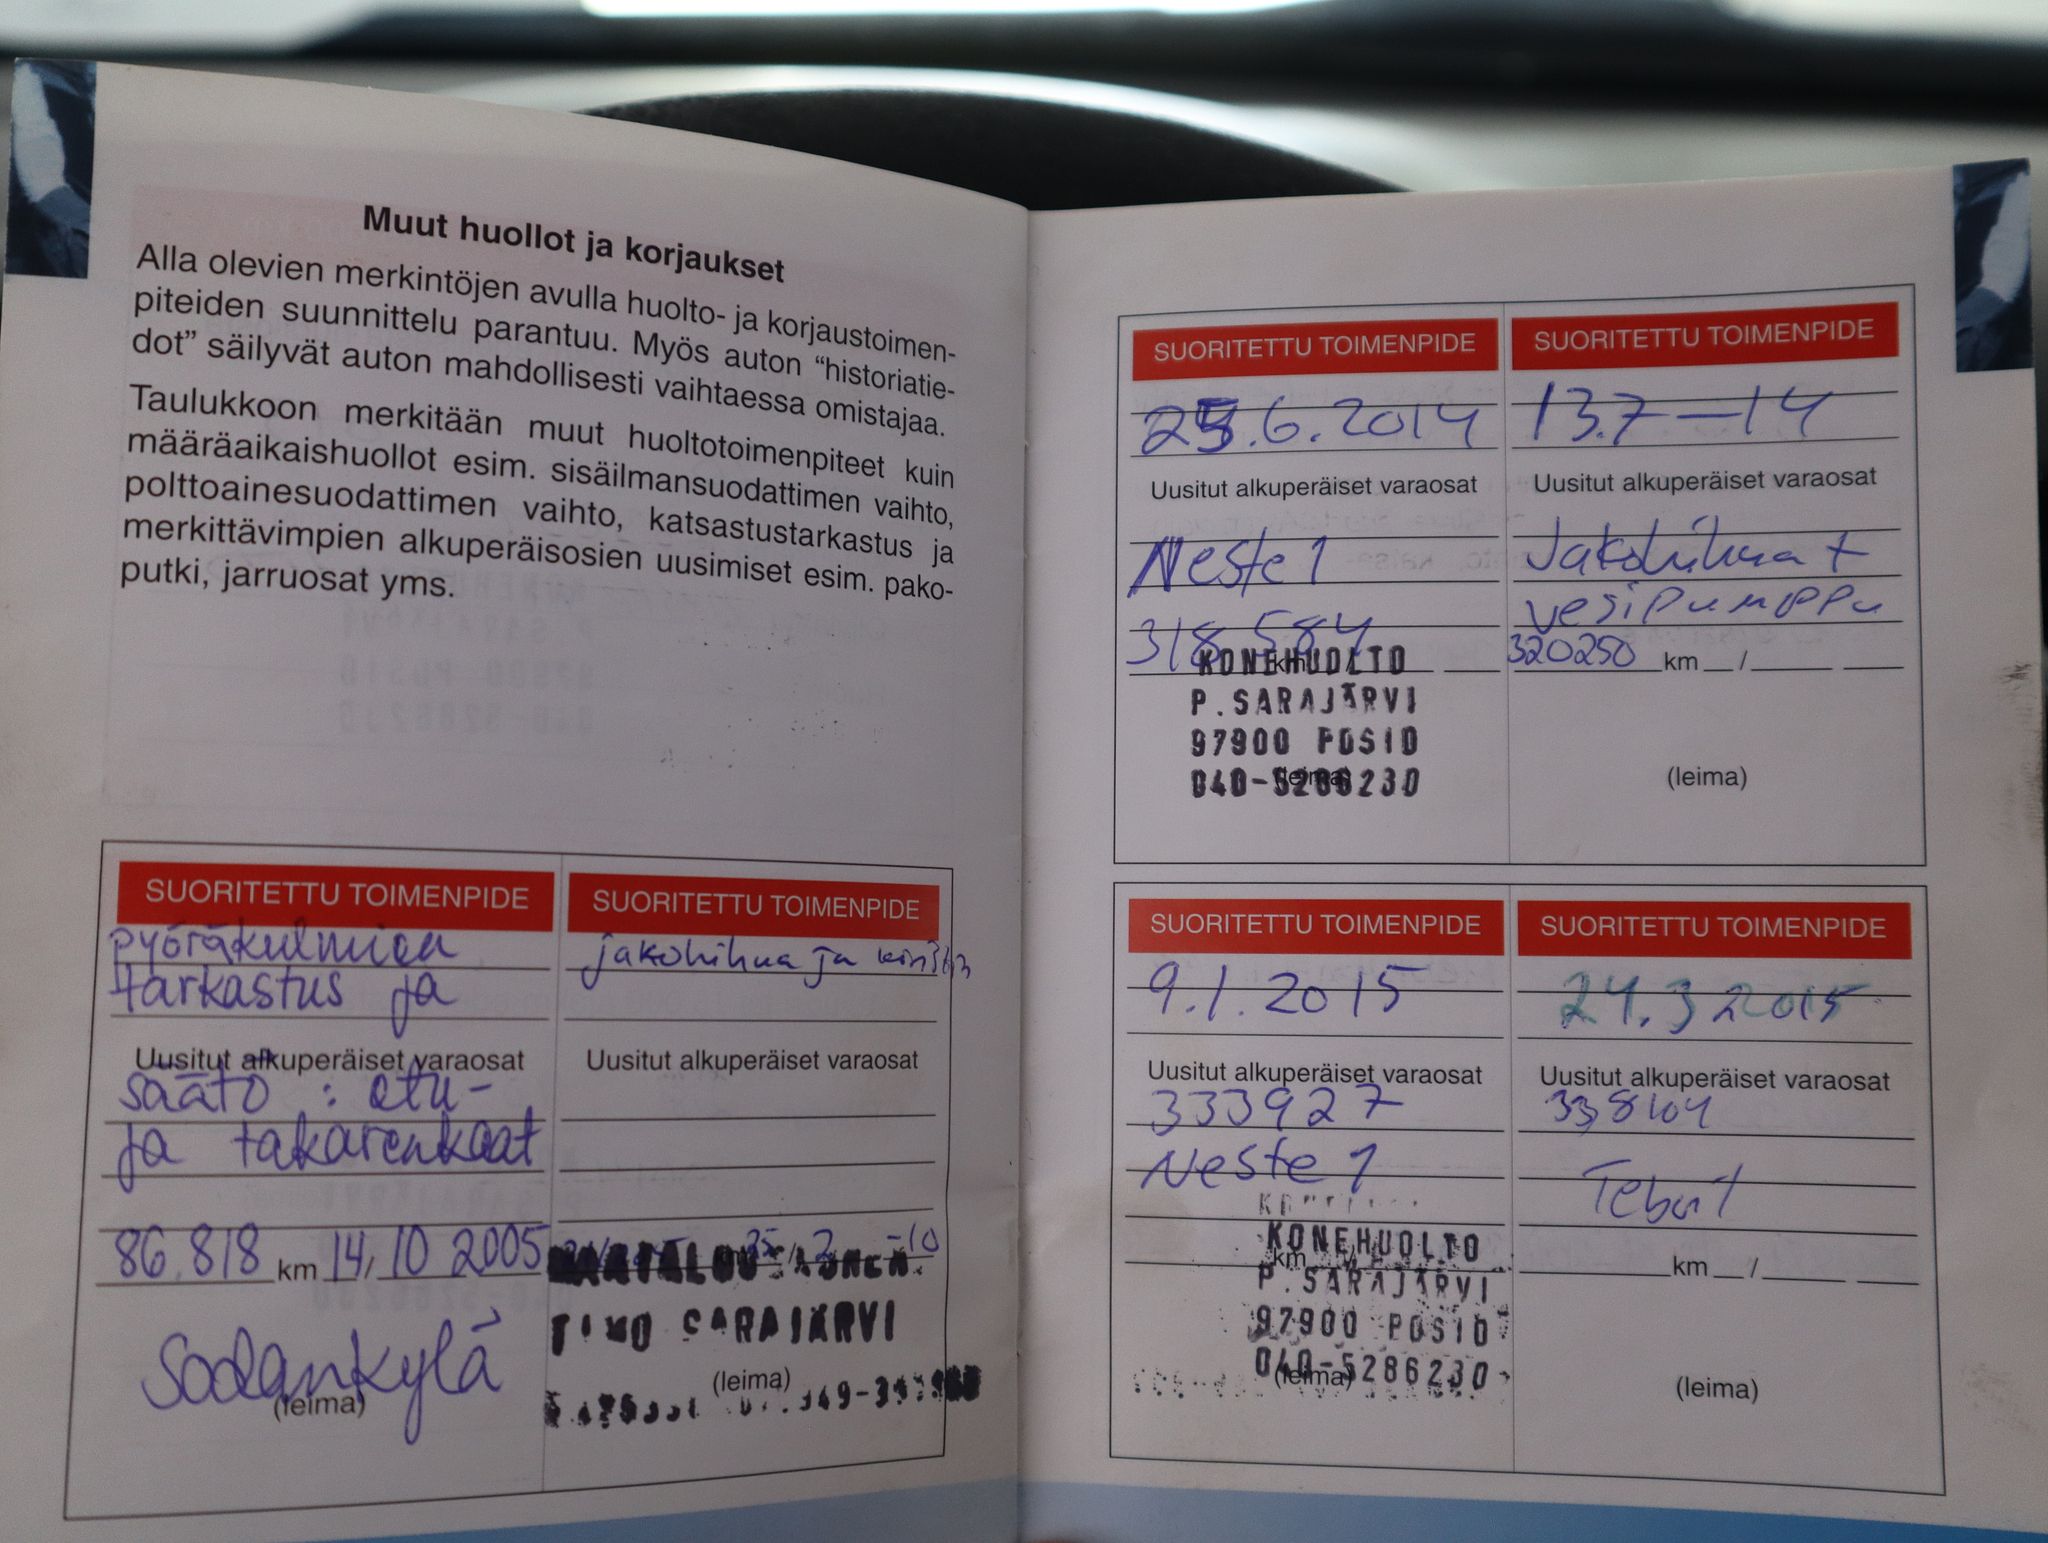 Muut huollot ja korjaukset
Alla olevien merkintöjen avulla huolto- ja korjaustoimen-
piteiden suunnittelu parantuu. Myös auton “historiatie-
dot” säilyvät auton mahdollisesti vaihtaessa omistajaa.
Taulukkoon merkitään muut huoltotoimenpiteet kuin
määräaikaishuollot esim. sisäilmansuodattimen vaihto,
polttoainesuodattimen vaihto, katsastustarkastus ja
merkittävimpien alkuperäisosien uusimiset esim. pako-
putki, jarruosat yms.
SUORITETTU TOIMENPIDE
pyöräkulmien
tarkastus ja
Uusitut alkuperäiset varaosat
säätö : etu-
ja takarenkaat
86.818 km 14/10 2005
Sodankylä
(leima)
SUORITETTU TOIMENPIDE
jakohihna ja
Uusitut alkuperäiset varaosat
-10
TIMO SARAJÄRVI
(leima)
SUORITETTU TOIMENPIDE
.6.2014
Uusitut alkuperäiset varaosat
Neste 1
318 584
km
KONEHUOLTO
P.SARAJÄRVI
97900 POSIO
040-5286230
(leima)
SUORITETTU TOIMENPIDE
13.7-14
Uusitut alkuperäiset varaosat
Jakohihna +
vesipumppu
320250 km /
(leima)
SUORITETTU TOIMENPIDE
9.1.2015
Uusitut alkuperäiset varaosat
333927
Neste 1
km
KONEHUOLTO
P.SARAJÄRVI
97900 POSIO
040-5286230
(leima)
SUORITETTU TOIMENPIDE
24.3 2015
Uusitut alkuperäiset varaosat
km /
(leima)